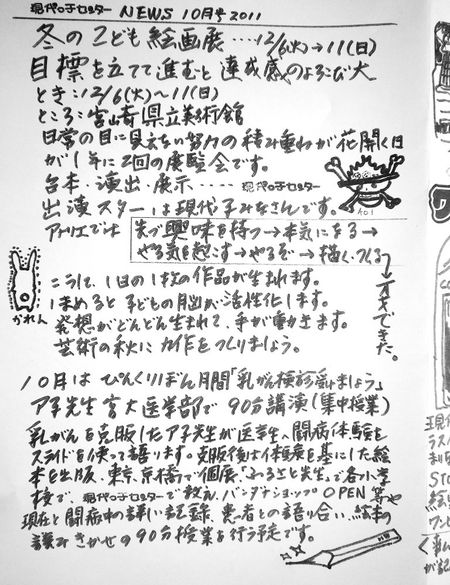 現代っ子センター NEWS 10月号2011
冬のこども絵画展‥‥12/6(火)→11(日)
目標を立てて進むと達成感のよろこび大
とき:12/6(火)~11(日)
ところ:宮崎県立美術館
日常の目に見えない努力の積み重ねが花開く日
が1年に2回の展覧会です。
台本・演出・展示‥‥‥現代っ子センター
出演スターは現代っ子みなさんです。
アトリエでは 先づ興味を持つ→本気になる→
やる気を起こす→やるぞ→描く・つくる
→すすできた。
こうして、1日の1枚の作品が生まれます。
ほめると子どもの脳が活性化します。
発想がどんどん生まれて、手が動きます。
芸術の秋に力作をつくりましょう。
かれ人
10月はぴんくりぼん月間「乳がん検診受けましょう」
ア子先生宮大医学部で90分講演(集中授業)
乳がんを克服したア子先生が医学生へ闘病体験を
スライドを使って語ります。克服後は体験を基にした絵
本を出版、東京、京橋で個展、「ふるさと先生」で各小学
校で、現代っ子センターで教え、バンダナショップOPEN等や
現在と闘病中の詳しい記録、患者との語り合い、絵本の
読みきかせの90分授業を行う予定です。